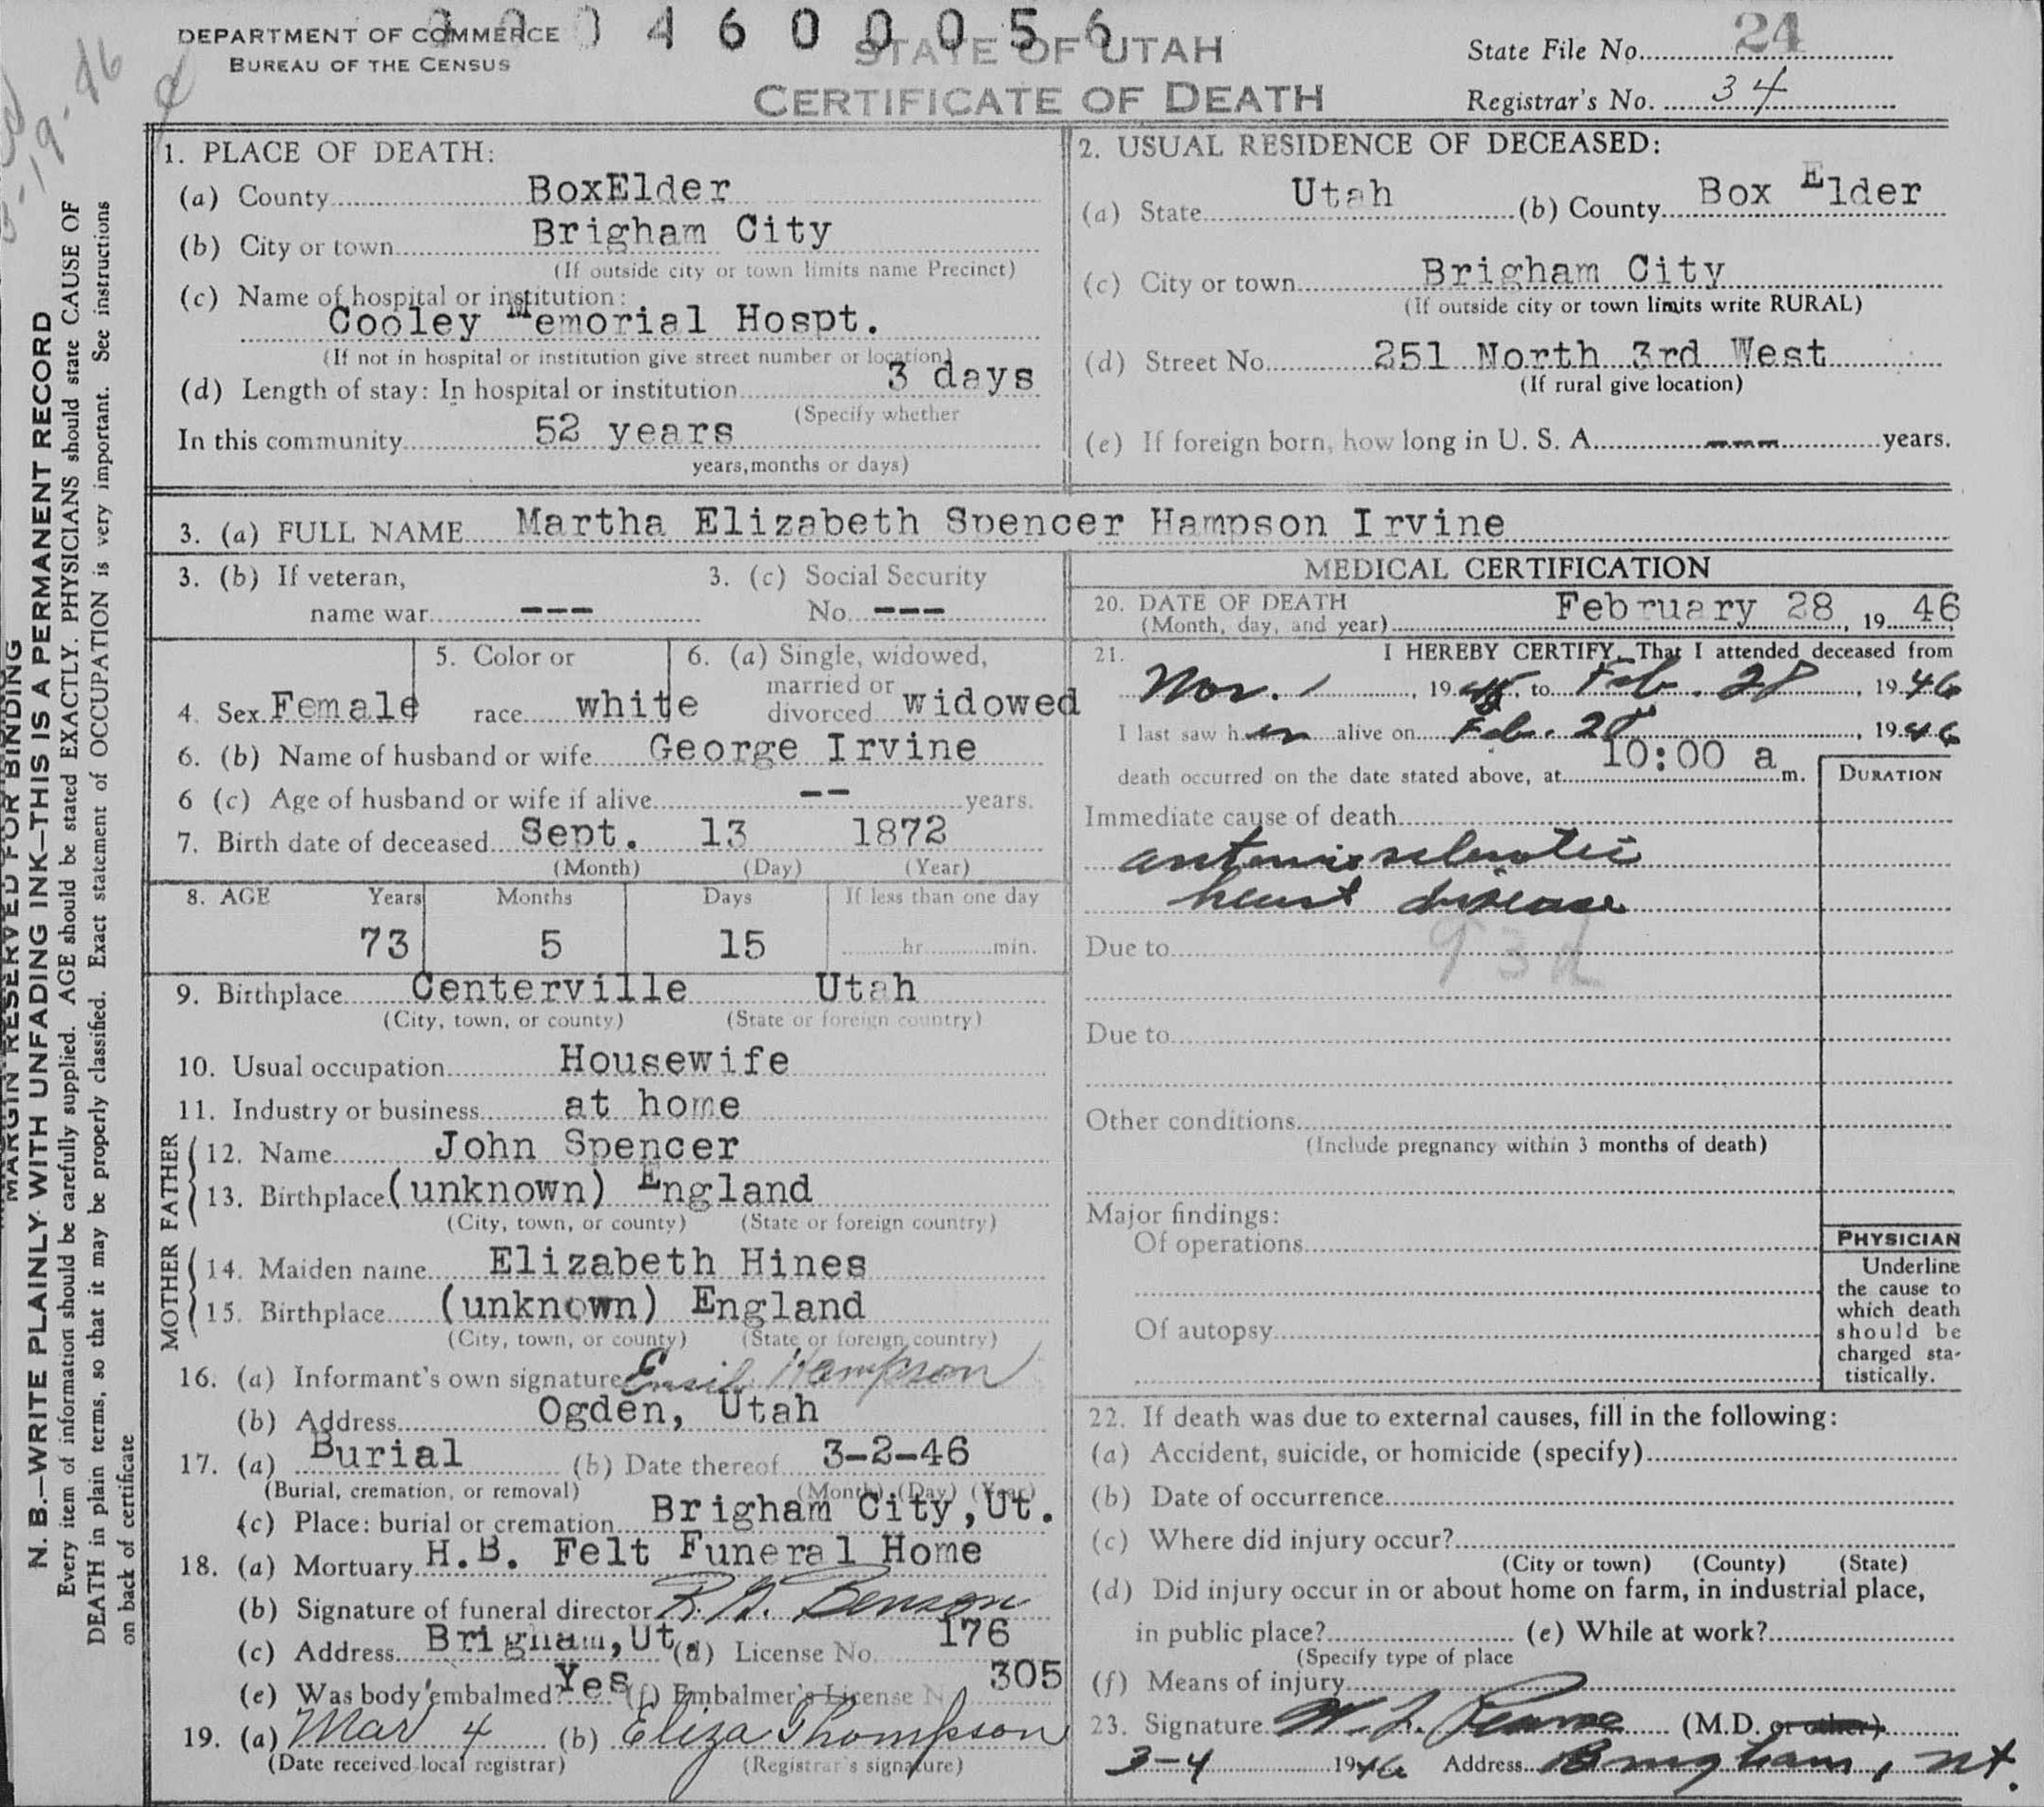 DEPARTMENT OF COMMERCE
BUREAU OF THE CENSUS
4 6 0 0 0 5 6
STATE OF UTAH
CERTIFICATE OF DEATH
State File No. 24
Registrar's No. 34
1. PLACE OF DEATH:
(a) County BoxElder
(b) City or town Brigham City
(If outside city or town limits name Precinct)
(c) Name of hospital or institution:
Cooley Memorial Hospt.
(If not in hospital or institution give street number or location)
(d) Length of stay: In hospital or institution 3 days
(Specify whether
In this community 52 years
years, months or days)
2. USUAL RESIDENCE OF DECEASED:
(a) State Utah (b) County Box Elder
(c) City or town Brigham City
(If outside city or town limits write RURAL)
(d) Street No. 251 North 3rd West
(If rural give location)
(e) If foreign born, how long in U. S. A. --- years.
3. (a) FULL NAME Martha Elizabeth Spencer Hampson Irvine
3. (b) If veteran,
name war ---
3. (c) Social Security
No. ---
4. Sex Female
5. Color or
race white
6. (a) Single, widowed,
married or
divorced widowed
6. (b) Name of husband or wife George Irvine
6 (c) Age of husband or wife if alive -- years.
7. Birth date of deceased Sept. 13 1872
(Month) (Day) (Year)
8. AGE Years Months Days If less than one day
73 5 15 hr. min.
9. Birthplace Centerville Utah
(City, town, or county) (State or foreign country)
10. Usual occupation Housewife
11. Industry or business at home
FATHER
12. Name John Spencer
13. Birthplace (unknown) England
(City, town, or county) (State or foreign country)
MOTHER
14. Maiden name Elizabeth Hines
15. Birthplace (unknown) England
(City, town, or county) (State or foreign country)
16. (a) Informant's own signature Hampson
(b) Address Ogden, Utah
17. (a) Burial (b) Date thereof 3-2-46
(Burial, cremation, or removal) (Month) (Day) (Year)
(c) Place: burial or cremation Brigham City, Ut.
18. (a) Mortuary H.B. Felt Funeral Home
(b) Signature of funeral director Benson
(c) Address Brigham, Ut. (d) License No. 176
(e) Was body embalmed? Yes (f) Embalmer's License N 305
19. (a) Mar 4 (b) Eliza Thompson
(Date received local registrar) (Registrar's signature)
MEDICAL CERTIFICATION
20. DATE OF DEATH
(Month, day, and year) February 28, 19 46
21. I HEREBY CERTIFY, That I attended deceased from
Nov. 1, 1945, to Feb. 28, 1946
I last saw her alive on Feb. 28, 1946
death occurred on the date stated above, at 10:00 a m.
DURATION
Immediate cause of death
arteriosclerotic
heart disease
Due to 93d
Due to
Other conditions
(Include pregnancy within 3 months of death)
Major findings:
Of operations
Of autopsy
PHYSICIAN
Underline
the cause to
which death
should be
charged sta-
tistically.
22. If death was due to external causes, fill in the following:
(a) Accident, suicide, or homicide (specify)
(b) Date of occurrence
(c) Where did injury occur?
(City or town) (County) (State)
(d) Did injury occur in or about home on farm, in industrial place,
in public place? (e) While at work?
(Specify type of place
(f) Means of injury
23. Signature (M.D. or other)
3-4 1946 Address Brigham, Ut.
MARGIN RESERVED FOR BINDING
N. B.—WRITE PLAINLY WITH UNFADING INK—THIS IS A PERMANENT RECORD
Every item of information should be carefully supplied. AGE should be stated EXACTLY. PHYSICIANS should state CAUSE OF
DEATH in plain terms, so that it may be properly classified. Exact statement of OCCUPATION is very important. See instructions
on back of certificate